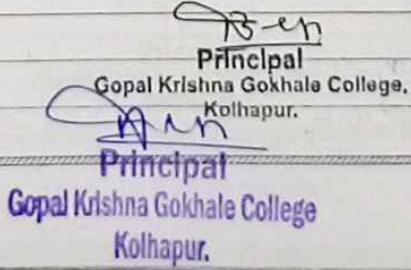 Principal
Gopal Krishna Gokhale College,
Kolhapur.
Principal
Gopal Krishna Gokhale College
Kolhapur.